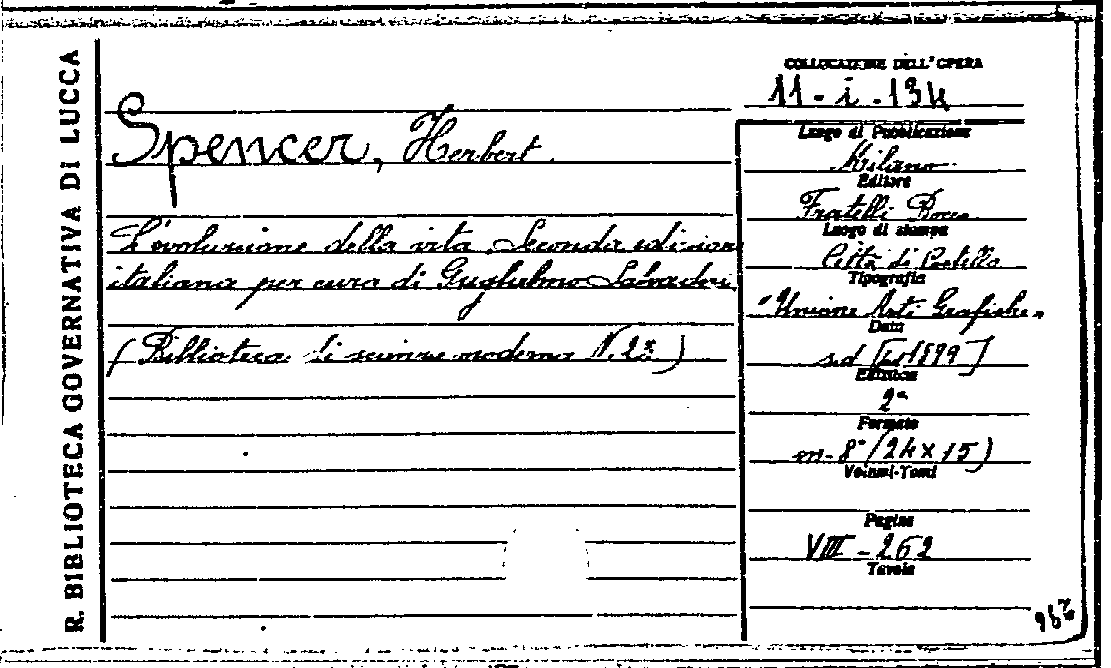 R. BIBLIOTECA GOVERNATIVA DI LUCCA
COLLOCAZIONE DELL'OPERA
11-i-134
Spencer, Herbert.
L'evoluzione della vita. Seconda edizione
italiana per cura di Guglielmo Salvadori.
(Biblioteca di scienze moderne N. 2)
Luogo di Pubblicazione
Milano
Editore
Fratelli Bocca
Luogo di stampa
Città di Castello
Tipografia
"Unione Arti Grafiche"
Data
s.d. 1899]
Edizione
2ª
Formato
m-8° (24x15)
Volumi-Tomi
Pagine
VIII-262
Tavole